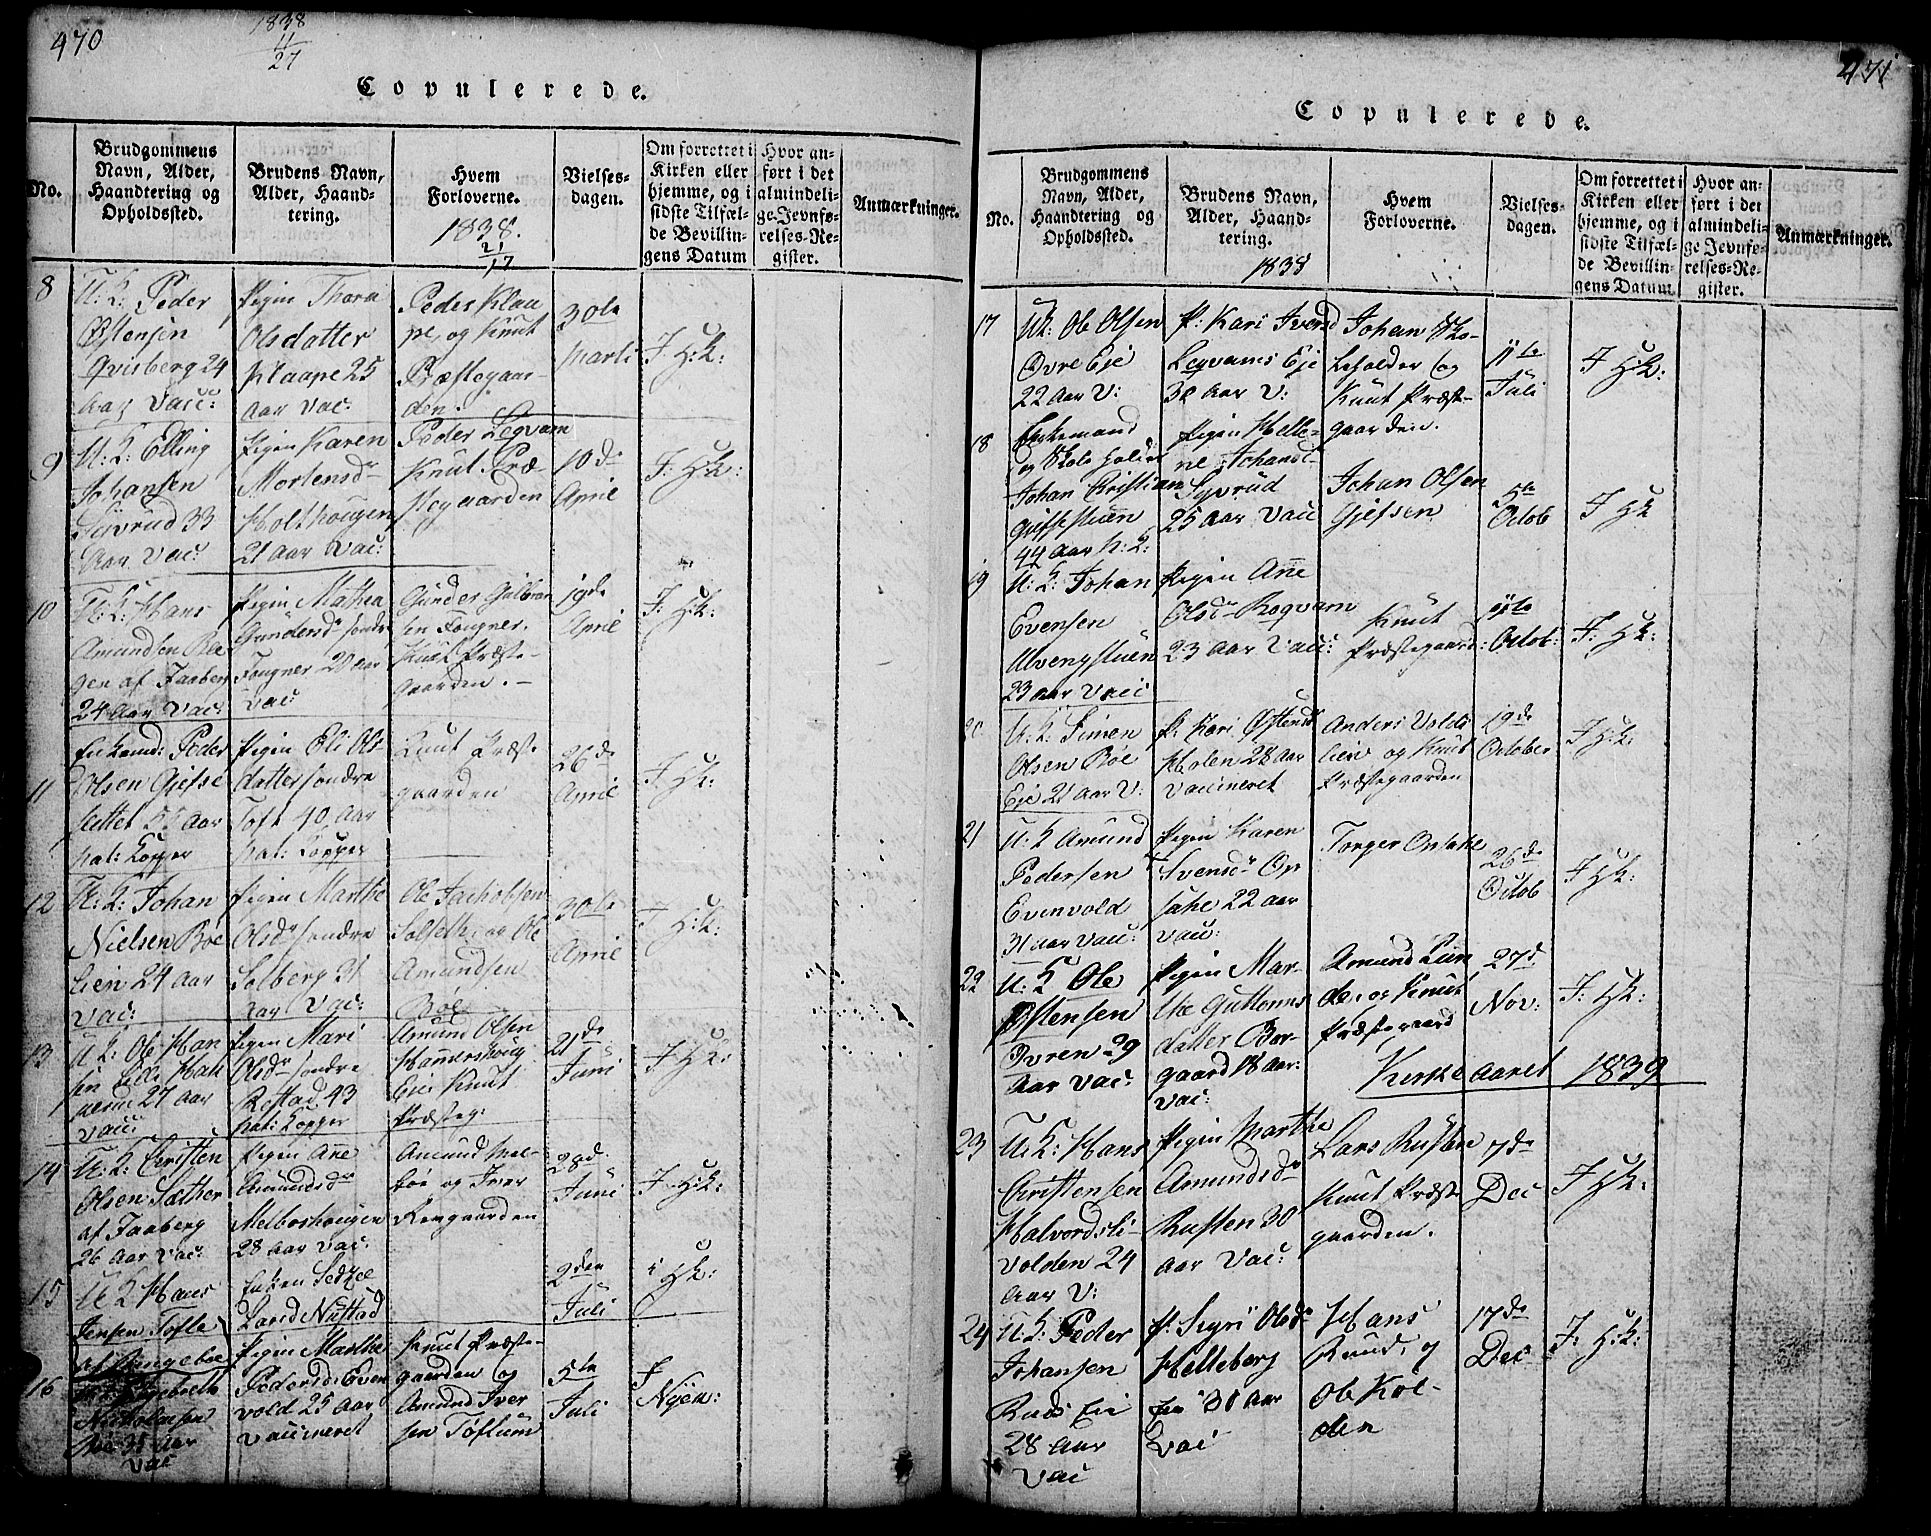 470
1838
11
27
Copulerede.
No.
Brudgommens
Navn, Alder,
Haandtering og
Opholdssted.
Brudens Navn,
Alder, Haand-
tering.
Hvem
Forloverne.
1838.
21
17
Vielses-
dagen.
Om forrettet i
Kirken eller
hjemme, og i
sidste Tilfæl-
de Bevillin-
gens Datum
Hvor an-
ført i det
almindeli-
ge Jevnfø-
relses-Re-
gister.
Anmærkninger.
8
U: K: Peder
Østensen
Qvisberg 24
Aar Vacc:
Pigen Thora
Olsdatter
Klaape 25
aar Vac:
Peder Klaa
pe, og Knut
Præstegaar-
den.
30te
Marti
I: H: K:
9
U: K: Elling
Johansen
Syvrud 33
Aar Vac:
Pigen Karen
Mortensdr
Holthougen
21 aar Vac:
Peder Legvam
Knut Præ-
stegaarden
10de
April
I: HK:
10
U: K: Hans
Amundsen
gen af Faaberg
24 aar Vac:
Pigen Mathea
Gundersd søndre
Fougner 20 aar
Vac:
Gunder Gulbran
sen Fougner.
Knut Præste-
gaarden. -
19de
April
I: HK:
11
Enkemd: Peder
Olsen Giefse
settet 55 Aar
nat: Kopper
Pigen Eli Ols
datter søndre
Toft 40 Aar
nat: Kopper
Knut Præste
gaarden
26de
April
I: HK:
12
U: K: Johan
Nielsen Bøe
Lien 24 aar
Vac:
Pigen Marthe
Olsdr søndre
Solberg 31
aar Vac:
Ole Jachobsen
Solseth, og Ole
Amundsen
Bøe
30te
April
I H: K:
13
U K: Ole Han
sen Lille Ham
27 aar
Vac:
Pigen Mari
Olsdr søndre
Rettad 43
nat: Kopper
Amund Olsen
Hammershoug
Eie Knut
Præsteg:
21de
Juni
I HK:
14
U: K: Christen
Olsen Sæther
af Faaberg
26 Aar Vac:
Pigen Anne
Amundsdr
Melboshougen
28 aar Vac:
Amund Mel-
boe og Iver
Romgaarden
28d.
Juni
I H: K:
15
U K Hans
Jensen Tofte
af Ringeboe
Enken
Nustad
2den
Juli
i HK:
16
Nicholaisen
31 aar
Vac
Pigen Marthe
Pedersd: Even
vold 25 aar
Vaccineret
Knut Præste-
gaarden og
Amund Iver
sen Toftum
5te
Juli
I
471
Copulerede.
No.
Brudgommens
Navn, Alder,
Haandtering og
Opholdssted.
Brudens Navn,
Alder, Haand-
tering.
1838
Hvem
Forloverne.
Vielses-
dagen.
Om forrettet i
Kirken eller
hjemme, og i
sidste Tilfæl-
de Bevillin-
gens Datum
Hvor an-
ført i det
almindeli-
ge Jevnfø-
relses-Re-
gister.
Anmærkninger.
17
UK: Ole Olsen
Øvre Eje
22 Aar V:
P: Kari Iversd
Legvams Eje
30 aar V:
Johan Sko-
leholder og
Knut Præst-
gaarden.
11te
Juli
I HK:
18
Enkemand
og Skoleholder
Johan Cristian
44 aar n: K:
Pigen Helle-
ne Johansd
Syvrud
25 aar Vacc
Johan Olsen
Gjefsen
5te
Octob
I HK
19
U: K: Johan
Evensen
Ulvengstuen
23 aar Vacc
Pigen Anne
Olsdr Rogvam
23 aar Vacc:
Knut
Præstegaard:
11te
Octob:
I: HK:
20
U: K Simen
Olsen Bøe
Eje 21 Aar V:
P: Kari Østensd
Holen 28 aar
Vaccineret
Anders Volds
lien og Knut
Præstegaarden
19de
October
I HK:
21
U: K Amund
Pedersen
Evenvold
31 aar Vacc:
Pigen Karen
Svensdr Op
sahe 22 aar
Vacc:
Torger Opsahe
26de
Octob
I HK:
22
U: K Ole
Østensen
Øvren 29
Aar Vac:
Pigen Mar-
the Guttorms
datter Bor-
gaard 18 aar:
Vac:
Amund Lun
de, og Knut
Præstegaard
27d
Nov:
I: HK:
Kirke aaret 1839
23
U: K: Hans
Christensen
Halvordsli-
volden 24
aar V:
Pigen Marthe
Amundsdr
Rusten 30
aar Vac:
Lars Rusten
Knut Præste
gaarden.
7de
Dec
I HK:
24
U K: Peder
Johansen
Ruds Eie
28 Aar
Vac
P: Sigri Olsdr
Helleberg
Eie 30 Aar
Vac
Hans
Ruud, og
Ole Kol-
den
17de
Dec
I: H: K: